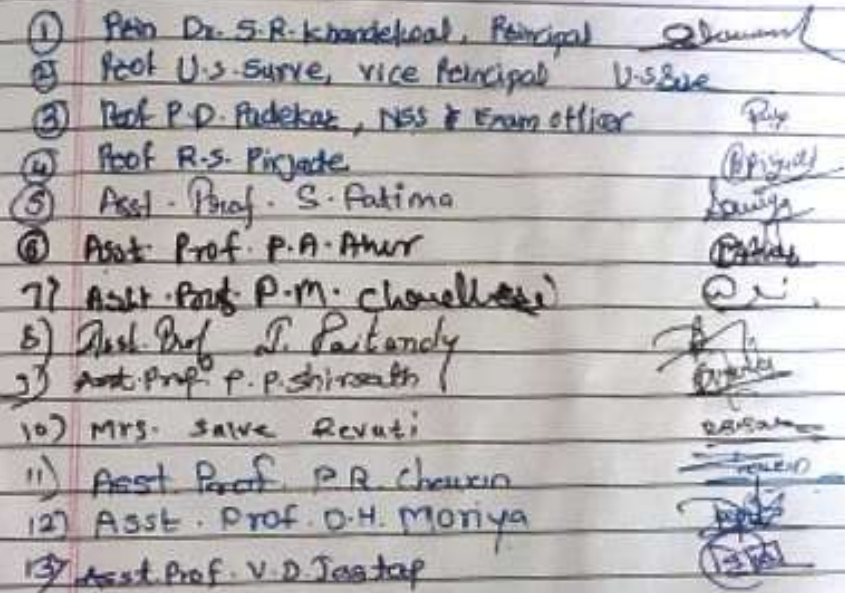 ① Prin Dr. S.R. Khandekoal, Principal
② Prof U.S. Surve, vice Principal U.S Sue
③ Prof P.D. Padekar, NSS & Exam officer
④ Prof R.S. Pirjade
⑤ Asst. Prof. S. Fatima
⑥ Asst. Prof. P.A. Aher
7) Asst. Prof. P.M.
8) Asst. Prof J. Paitandy
9) Asst. Prof. P.P. Shirsath
10) Mrs. Salve Revati
11) Asst Prof. P.R. Chauhan
12) Asst. Prof. D.H. Moriya
13) Asst. Prof. V.D. Jagtap